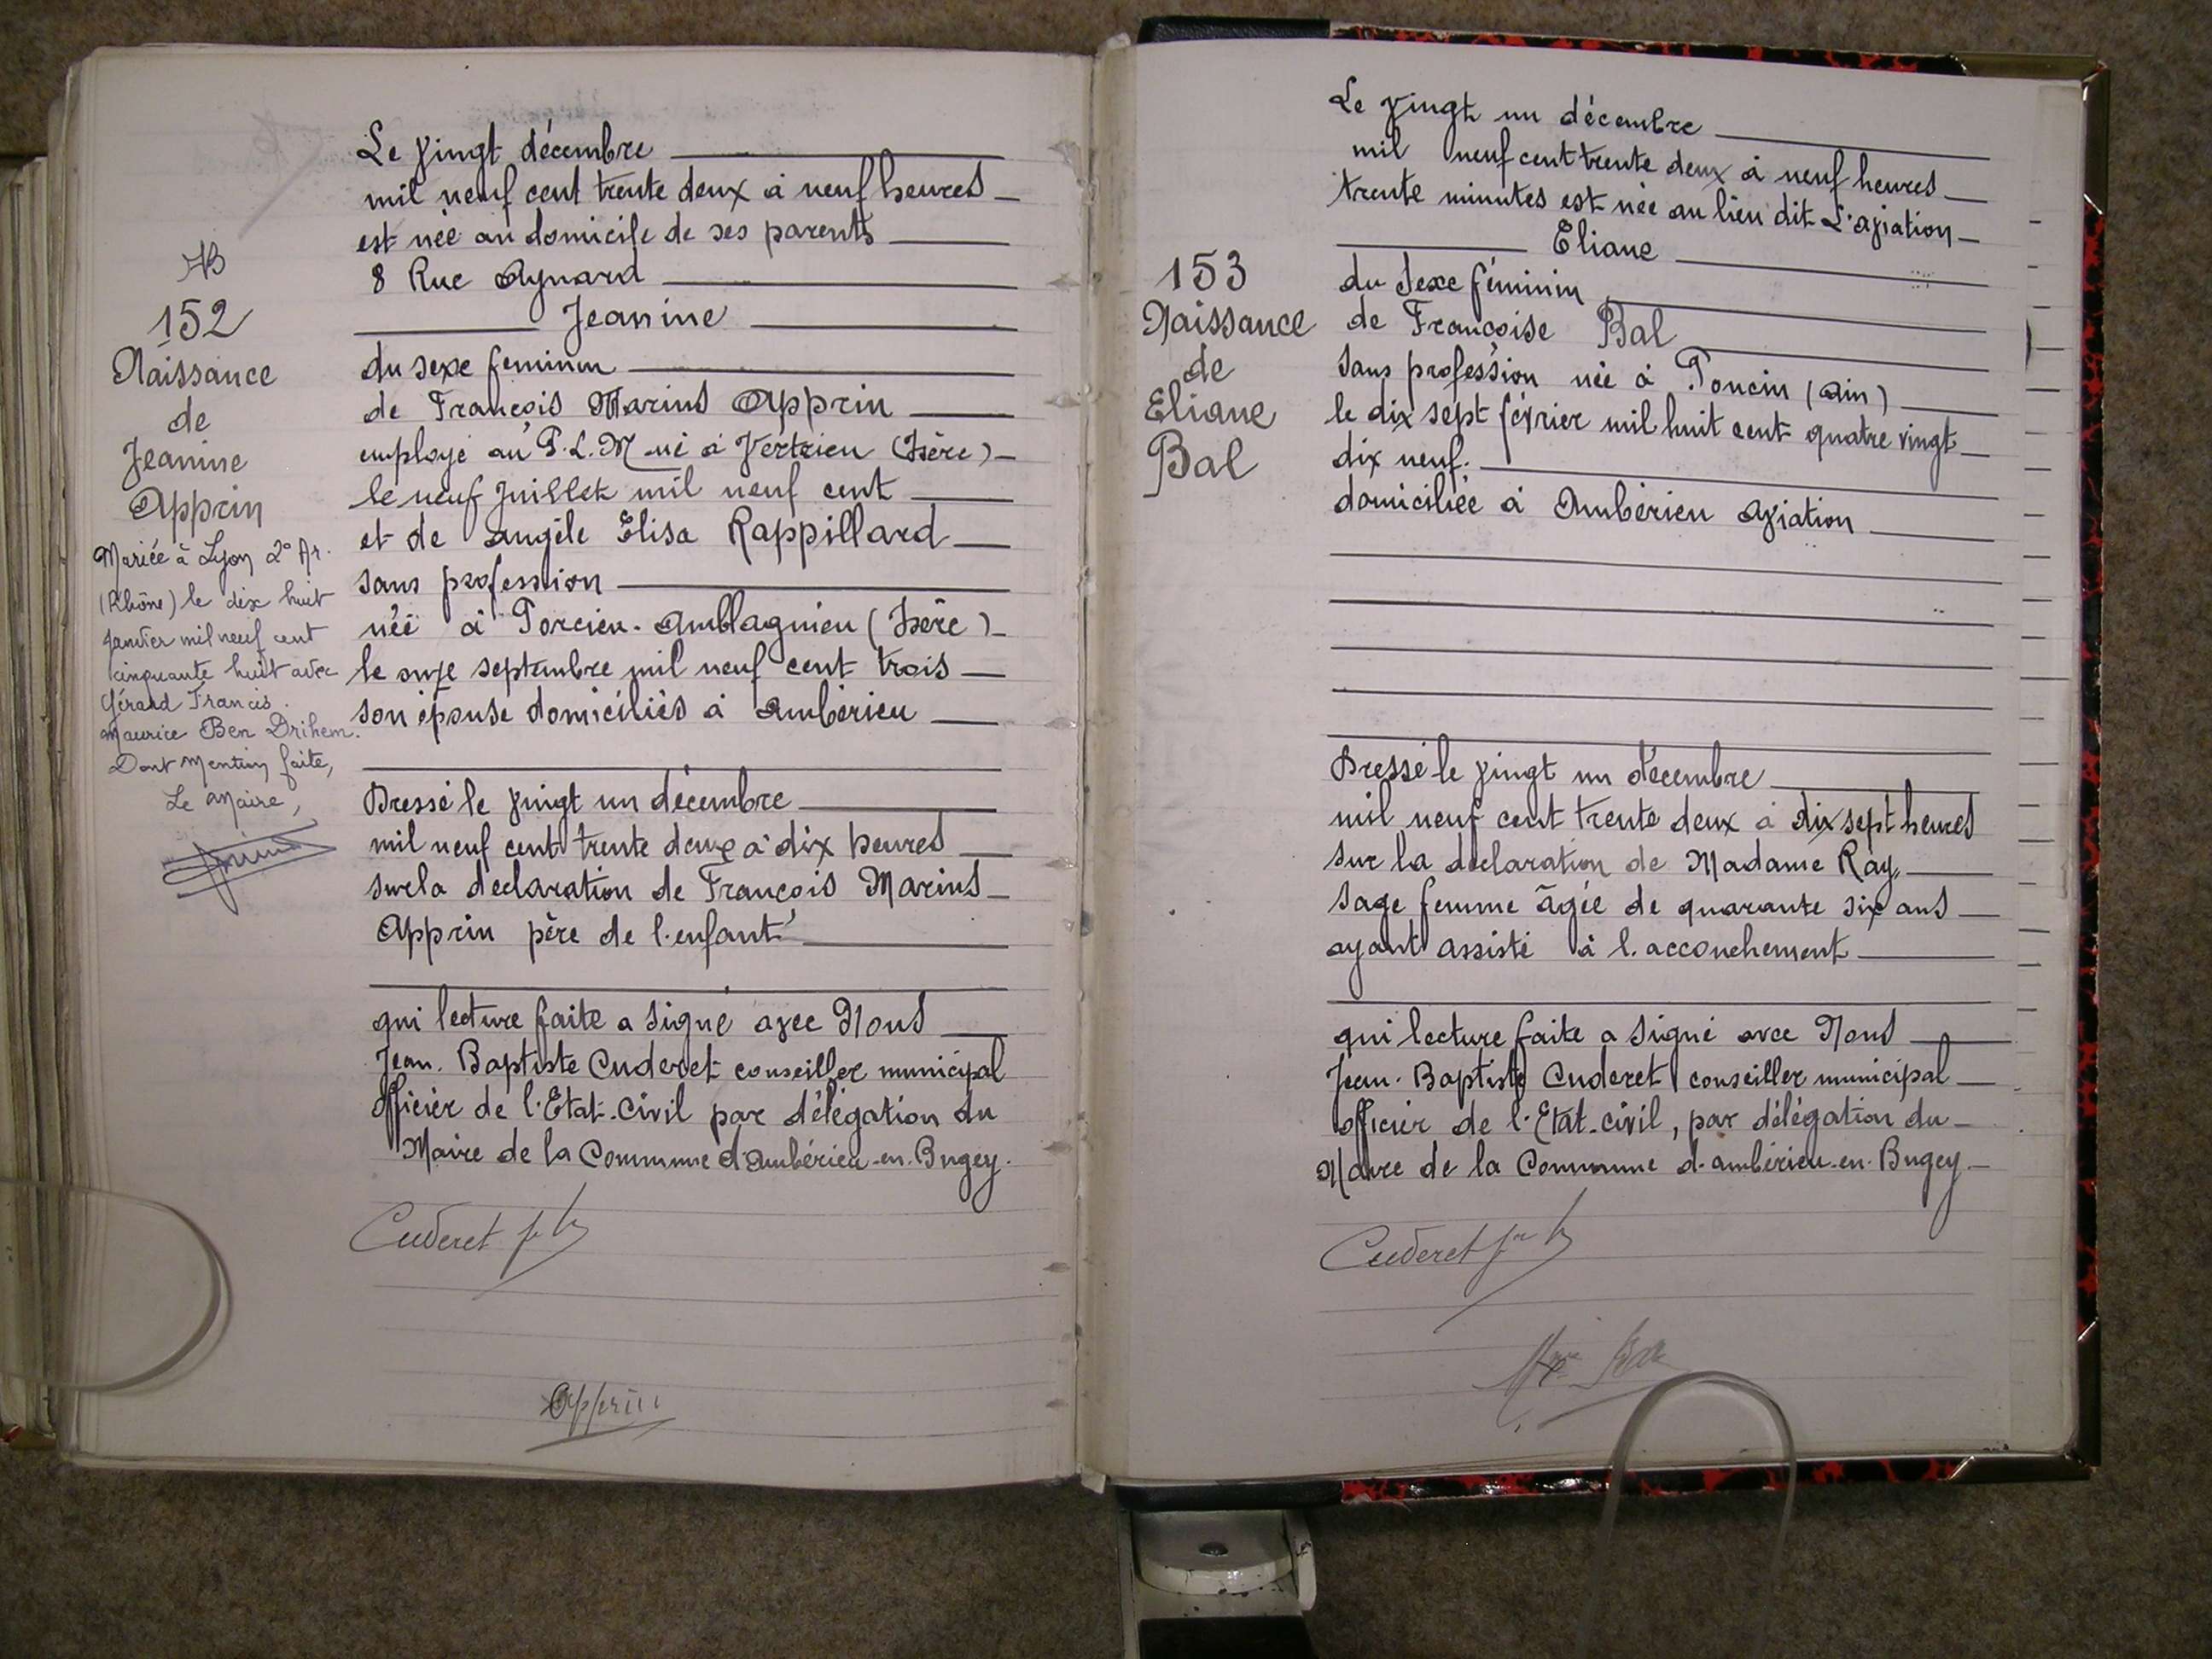 AB
152
Naissance
de
Jeanine
Apprin
Mariée à Lyon 2° Ar.
(Rhône) le dix huit
Janvier mil neuf cent
cinquante huit avec
Gérard Francis
Maurice Ben Drihem.
Dont Mention faite,
Le Maire,
Le vingt décembre
mil neuf cent trente deux à neuf heures
est née au domicile de ses parents
8 Rue Aynard
Jeanine
du sexe feminin
de François Marius Apprin
employé au P.L.M né à Vertrieu (Isère)
le neuf Juillet mil neuf cent
et de Angèle Elisa Rappillard
sans profession
née à Porcieu-Amblagnieu (Isère)
le onze septembre mil neuf cent trois
son épouse domiciliés à Ambérieu
Dressé le vingt un décembre
mil neuf cent trente deux à dix heures
sur la déclaration de François Marius
Apprin père de l'enfant
qui lecture faite a signé avec Nous
Jean-Baptiste Cuderet conseiller municipal
officier de l'Etat-Civil par délégation du
Maire de la Commune d'Ambérieu-en-Bugey.
Cuderet
Apprin
153
Naissance
de
Eliane
Bal
Le vingt un décembre
mil neuf cent trente deux à neuf heures
trente minutes est née au lieu dit L'aviation
Eliane
du Sexe féminin
de Françoise Bal
sans profession née à Poncin (Ain)
le dix sept février mil huit cent quatre vingt
dix neuf.
domiciliée à Ambérieu Aviation
Dressé le vingt un décembre
mil neuf cent trente deux à dix sept heures
sur la déclaration de Madame Ray,
sage femme âgée de quarante six ans
ayant assisté à l'accouchement
qui lecture faite a signé avec Nous
Jean-Baptiste Cuderet conseiller municipal
officier de l'Etat-civil, par délégation du
Maire de la Commune d'ambérieu-en-Bugey
Cuderet